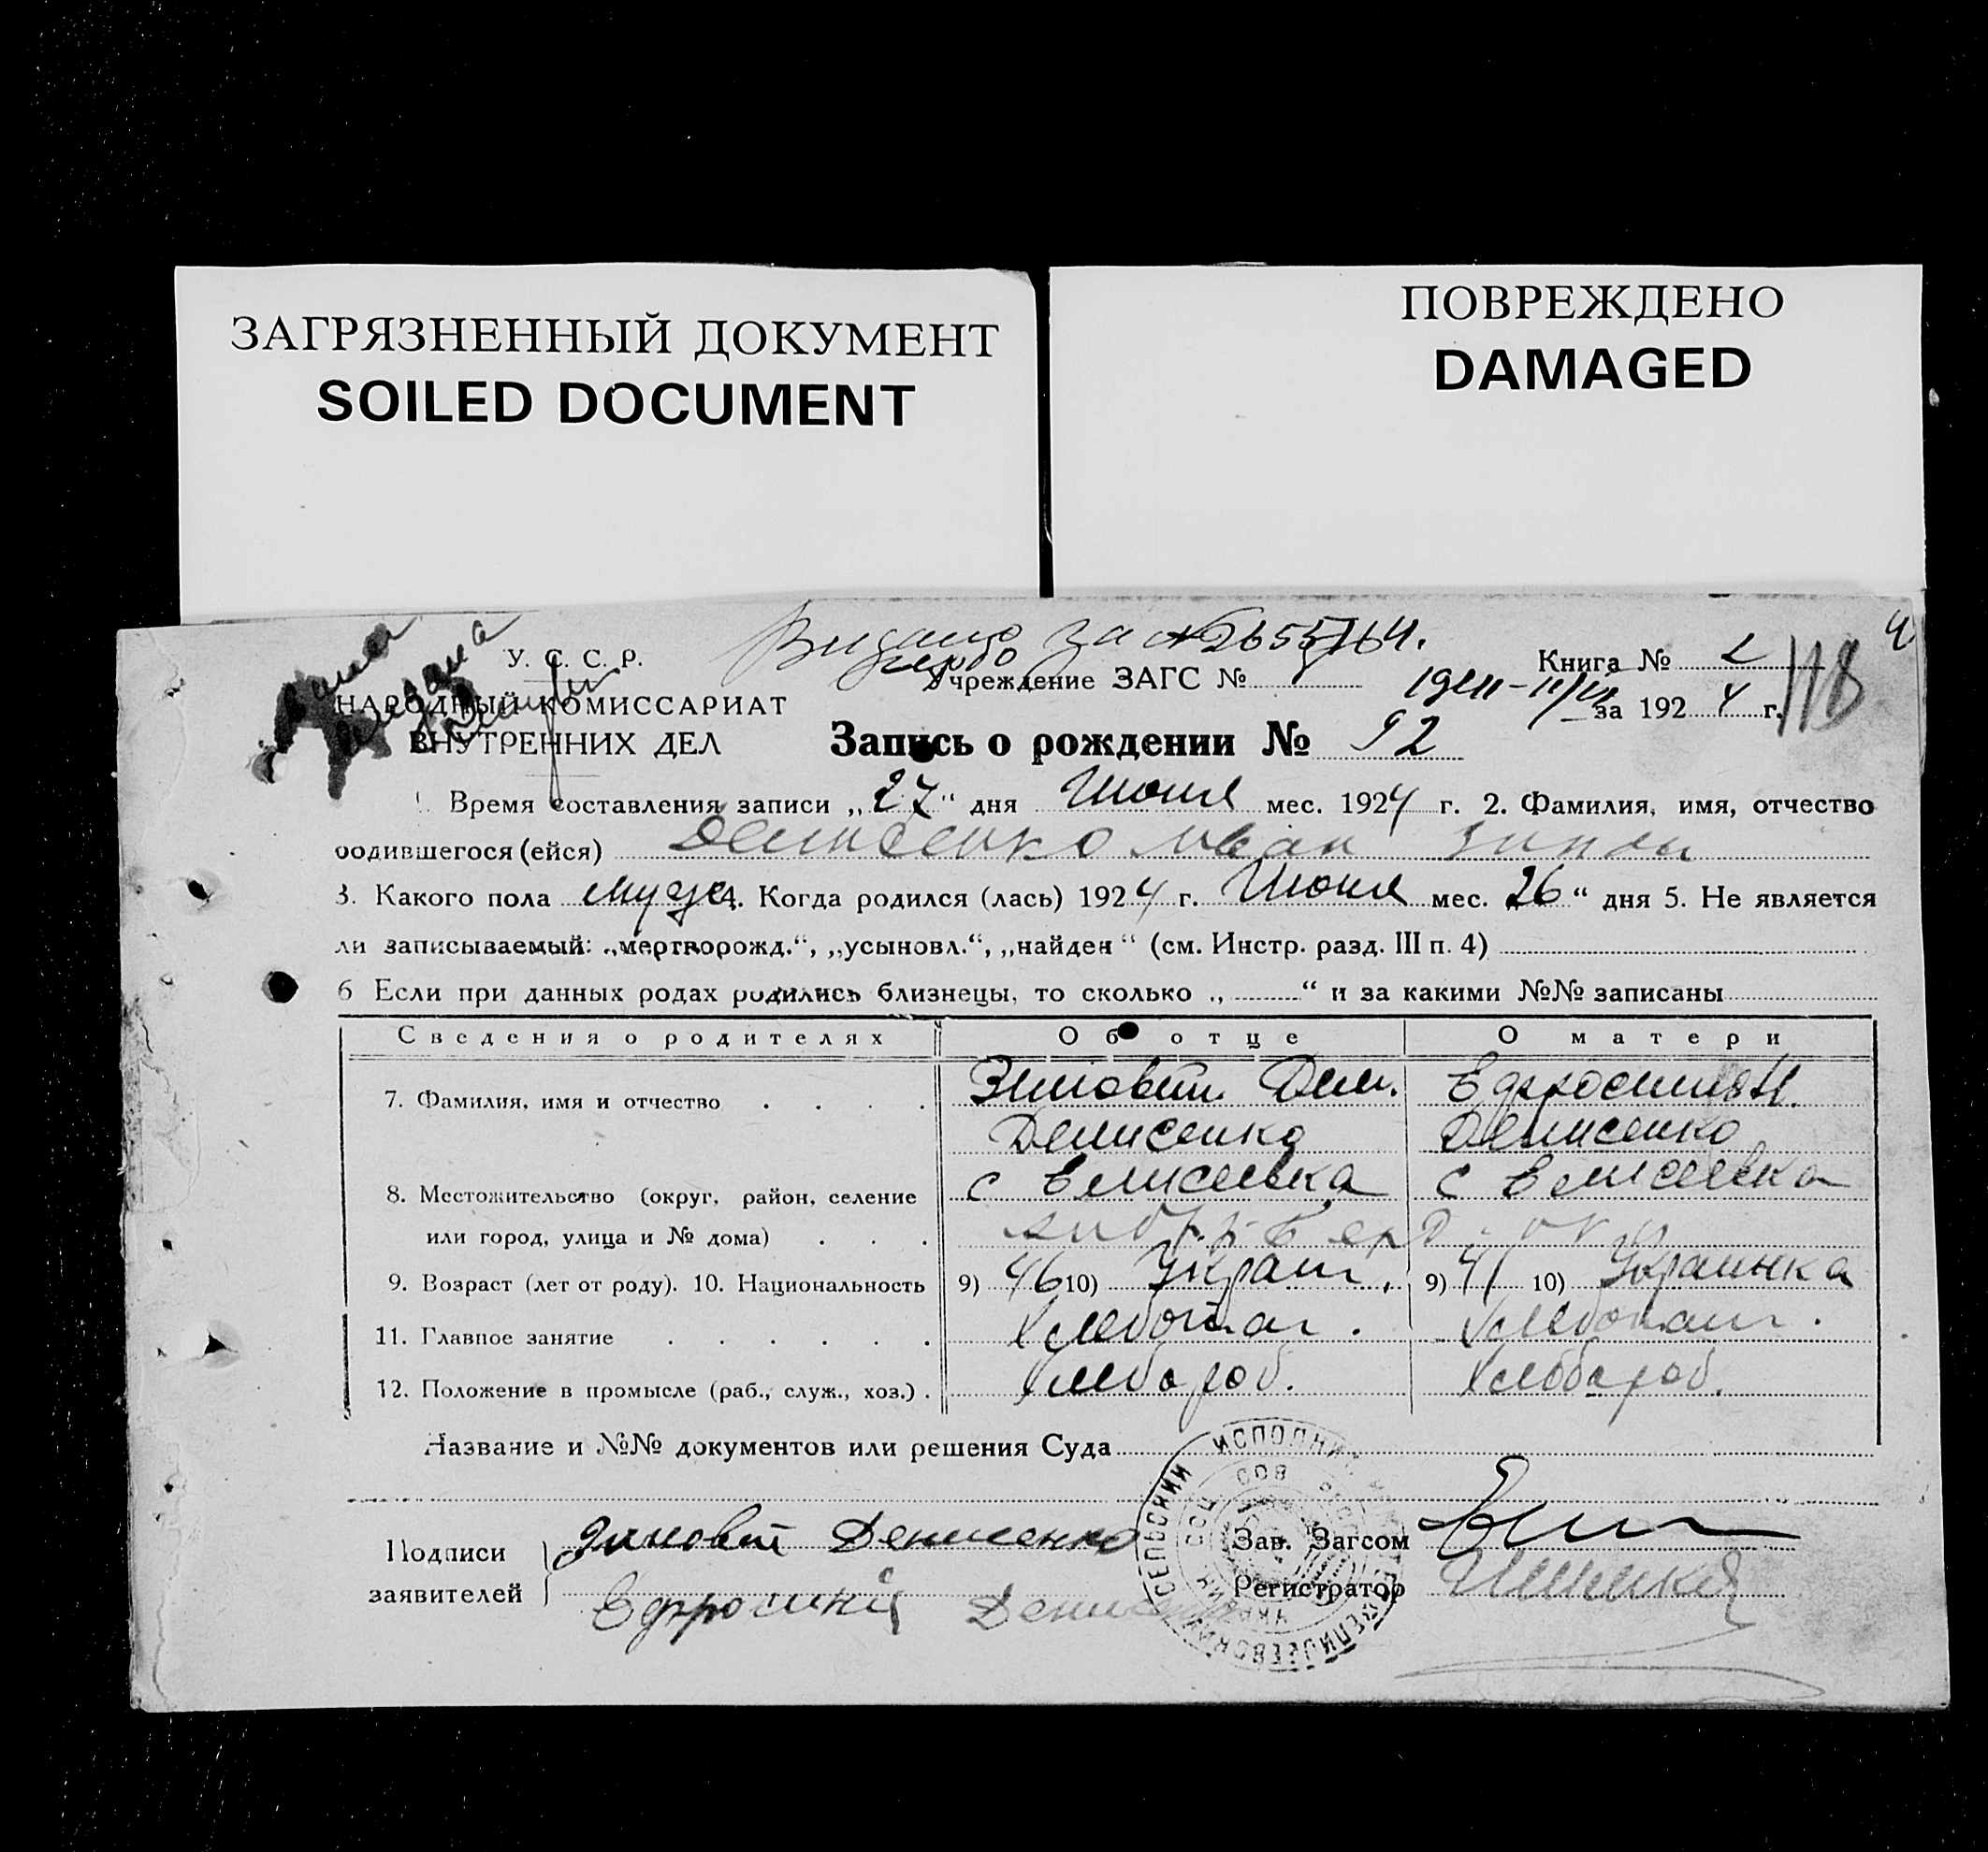 ЗАГРЯЗНЕННЫЙ ДОКУМЕНТ
SOILED DOCUMENT
ПОВРЕЖДЕНО
DAMAGED
Видано за №
У. С. С. Р.
Учреждение ЗАГС №
Книга №
НАРОДНЫЙ КОМИССАРИАТ
за 1924 г.
118
ВНУТРЕННИХ ДЕЛ
Запись о рождении № 92
Время составления записи „27“ дня Июня мес. 1924 г. 2. Фамилия, имя, отчество
родившегося (ейся) Денисенко Иван Зинов
3. Какого пола муж 4. Когда родился (лась) 1924 г. Июня мес. 26“ дня 5. Не является
ли записываемый: „мертворожд.“, „усыновл.“, „найден“ (см. Инстр. разд. III п. 4)
6 Если при данных родах родились близнецы, то сколько „ “ и за какими №№ записаны
Сведения о родителях Об отце О матери
7. Фамилия, имя и отчество Зиновий Дем. Ефросиния
Денисенко Денисенко
8. Местожительство (округ, район, селение с Елисеевка с Елисеевка
или город, улица и № дома)
9. Возраст (лет от роду). 10. Национальность 9) 46 10) Украин. 9) 41 10) Украинка
11. Главное занятие Хлебопаш. Хлебопаш.
12. Положение в промысле (раб., служ., хоз.) Хлебороб. Хлебороб.
Название и №№ документов или решения Суда
Подписи Зиновий Денисенко Зав. Загсом
заявителей Ефросинія Денисенко Регистратор
СЕЛЬСКИЙ ИСПОЛНИ